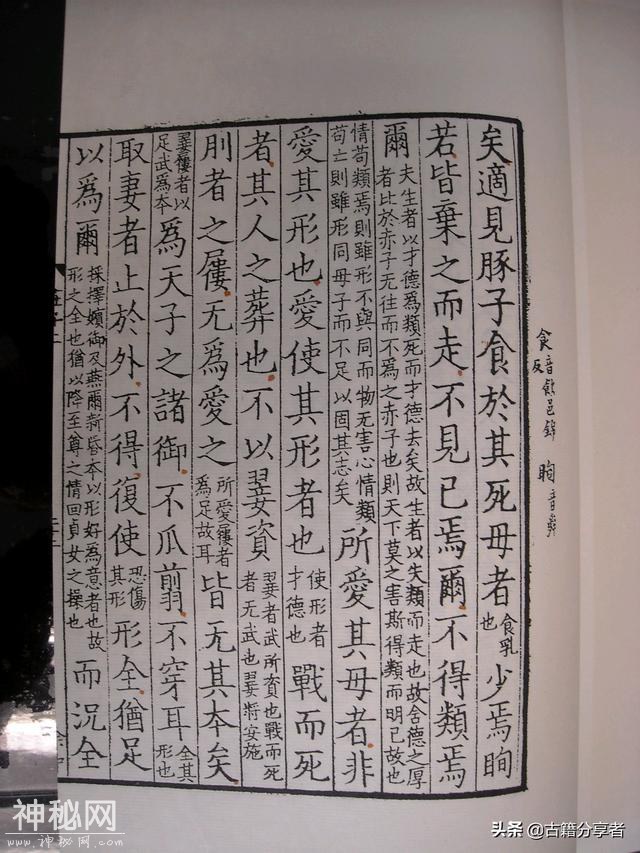 食音飤邑錦反 眴音舜
矣適見豚子食於其死母者食乳也少焉眴
若皆棄之而走不見己焉爾不得類焉
爾夫生者以才德爲類死而才德去矣故生者以失類而走也故含德之厚者比於赤子无往而不爲之赤子也則天下莫之害斯得類而明已故也
情苟類焉則雖形不與同而物无害心情類苟亡則雖形同母子而不足以固其志矣所愛其母者非
愛其形也愛使其形者也使形者才德也戰而死
者其人之葬也不以翣資翣者武所資也戰而死者无武也翣將安施
刖者之屨无爲愛之所愛屨者爲足故耳皆无其本矣
翣屨者以足武爲本爲天子之諸御不爪翦不穿耳全其形也
取妻者止於外不得復使恐傷其形形全猶足
以爲爾採擇嬪御及燕爾新昏本以形好爲意者也故形之全也猶以降至尊之情回貞女之操也而況全
神秘网
www.神秘网.com
头条 @古籍分享者